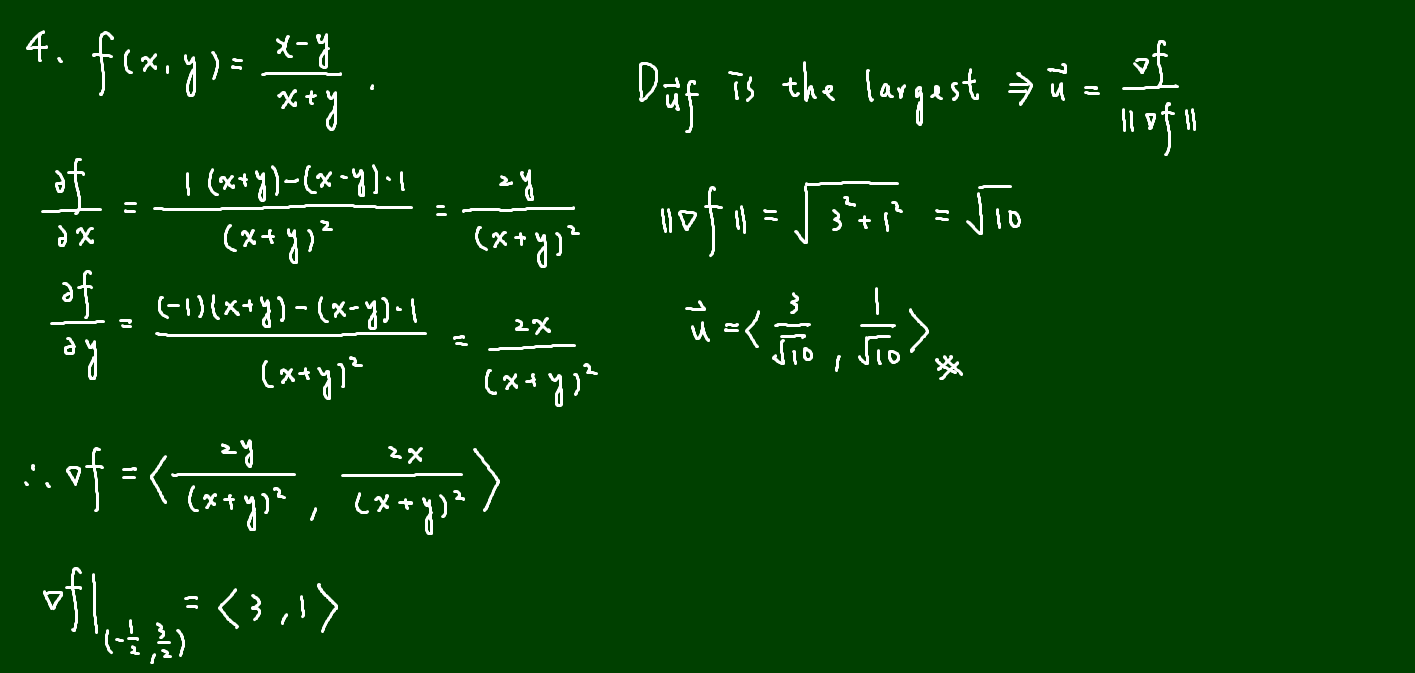 4. f(x,y) = \frac{x-y}{x+y} .
\frac{∂f}{∂x} = \frac{1(x+y)-(x-y)·1}{(x+y)^2} = \frac{2y}{(x+y)^2}
\frac{∂f}{∂y} = \frac{(-1)(x+y)-(x-y)·1}{(x+y)^2} = \frac{2x}{(x+y)^2}
∴ ∇f = ⟨ \frac{2y}{(x+y)^2} , \frac{2x}{(x+y)^2} ⟩
∇f|_{(-\frac{1}{2}, \frac{3}{2})} = ⟨3, 1⟩
D_{\vec{u}}f is the largest ⇒ \vec{u} = \frac{∇f}{||∇f||}
||∇f|| = \sqrt{3^2+1^2} = \sqrt{10}
\vec{u} = ⟨ \frac{3}{\sqrt{10}} , \frac{1}{\sqrt{10}} ⟩ ※